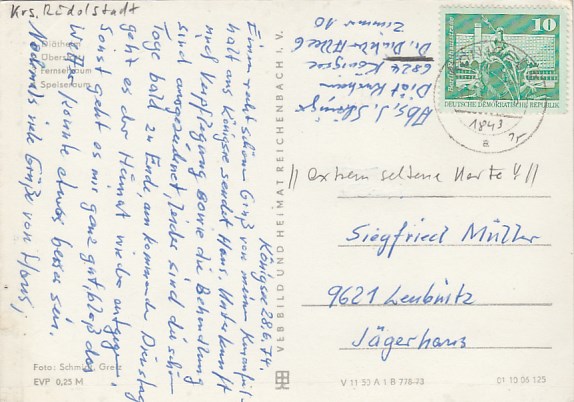 Krs. Rudolstadt
Diätheim
Fernsehraum
Speiseraum
Königsee 28.6.74.
Einen recht schönen Gruß von meinem Kuraufent-
halt aus Königsee sendet Hans. Unterkunft
und Verpflegung sowie die Behandlung
sind ausgezeichnet, leider sind die schönen
Tage bald zu Ende, am kommenden Dienstag
geht es der Heimat wieder entgegen.
Sonst geht es mir ganz gut, bloß das
Wetter könnte etwas besser sein.
Nochmals viele Grüße von Hans,
Foto: Schmidt, Greiz
EVP 0,25 M
VEB BILD UND HEIMAT REICHENBACH I. V.
Abs. J.
Diät Kurheim
6824 Königsee
Zimmer 10
10
DEUTSCHE DEMOKRATISCHE REPUBLIK
1843
a
// extrem seltene Karte !! //
Siegfried Müller
9621 Leubnitz
Jägerhaus
V 11 50 A 1 B 778-73
01 10 06 125